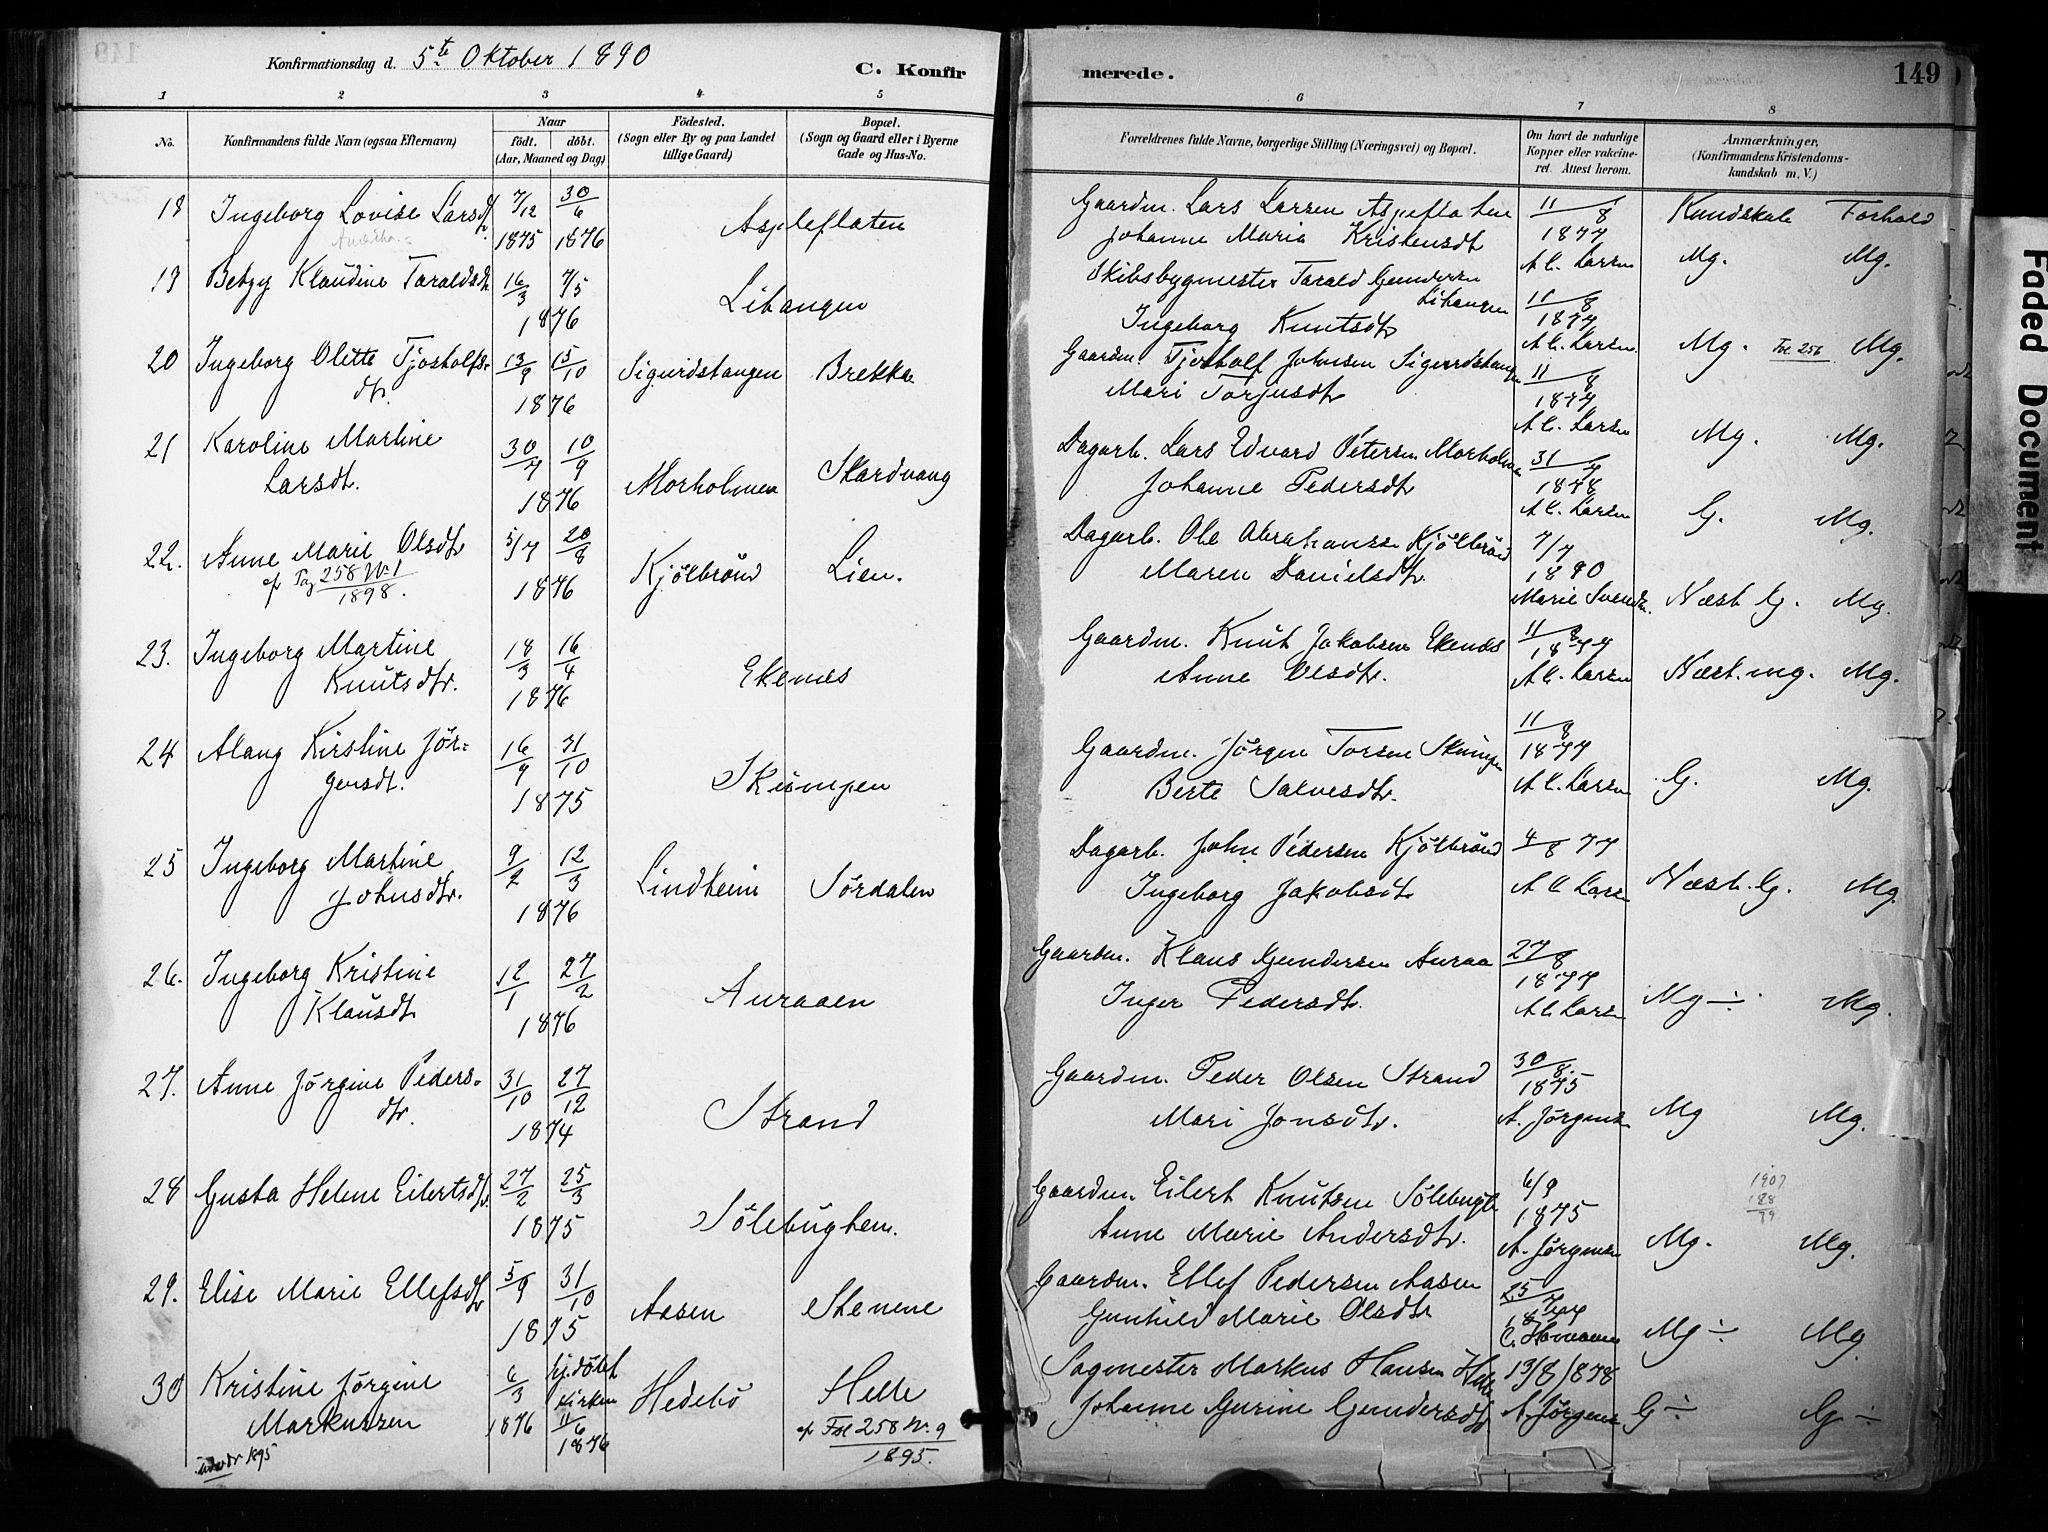 Konfirmationsdag d. 5te Oktober 1890
C. Konfirmerede.
149
1 2 3 4 5 6 7 8
No.
Konfirmandens fulde Navn (ogsaa Efternavn)
Naar
født. døbt.
(Aar, Maaned og Dag)
Fødested.
(Sogn eller By og paa Landet
tillige Gaard)
Bopæl.
(Sogn og Gaard eller i Byerne
Gade og Hus-No.
Forældrenes fulde Navne, borgerlige Stilling (Næringsvei) og Bopæl.
Om havt de naturlige
Kopper eller vakcine-
ret. Attest herom.
Anmærkninger.
(Konfirmandens Kristendoms-
kundskab m. V.)
18 Ingeborg Lovise Larsdt. 7/12 1875 30/6 1876 Aspleflaten
Gaardm. Lars Larsen Aspeflaten
Johanne Maria Kristensdt
11/8 1877 A C. Larsen
Kundskab Forhold
Mg. Mg.
19 Betzy Klaudine Taraldsdtr 16/3 7/5 1876 Libangen
Skibsbygmester Tarald Gundersen Libangen
Ingeborg Knutsdtr
11/8 1877 A C. Larsen.
Mg. Fol. 256 Mg.
20 Ingeborg Olette Tjostolfs-
dtr. 13/9 15/10 1876 Sigurdstangen Brekka
Gaardm. Tjostolf Johnsen Sigurdstangen
Mari Torjusdtr
11/8 1877 A C. Larsen
Mg. Mg.
21 Karoline Martine
Larsdt. 30/7 10/9 1876 Morholmen Skardvang
Dagarb. Lars Edvard Petersen Morholmen
Johanne Pedersdtr
31/7 1878 A C. Larsen
G. Mg.
22. Anne Marie Olsdtr 5/7 20/8 1876 Kjölbrönd Lien.
cf Pag 258 N. 1
1898.
Dagarb. Ole Abrahamsen Kjölbrönd
Maren Danielsdtr.
7/7 1890
Marie Svendsn.
Næst. G. Mg.
23. Ingeborg Martine
Knutsdtr. 18/3 16/4 1876 Ekenes
Gaardm. Knut Jakobsen Ekenes
Anne Olsdtr.
11/8 1877 A C. Larsen
Næst. mg. Mg.
24 Alang Kirstine Jör-
gensdt. 16/9 31/10 1875 Skumpen
Gaardm. Jörgen Torsen Skumpen
Berte Salvesdtr.
11/8 1877 A C. Larsen
G. Mg.
25 Ingeborg Martine
Johnsdtr. 9/2 12/3 1876 Lindheim Sördalen
Dagarb. John Pedersen Kjölbrönd
Ingeborg Jakobsdtr
4/8 77
A C Larsen
Næst. G. Mg.
26. Ingeborg Kristine
Klausdtr 12/1 27/2 1876 Auraaen
Gaardm. Klaus Gundersen Auraa
Inger Pedersdtr.
27/8 1877 A C Larsen
Mg ÷ Mg.
27. Anne Jörgine Peders-
dtr. 31/10 27/12 1874 Strand
Gaardm. Peder Olsen Strand
Mari Jonsdtr.
30/8. 1875
A. Jörgensen
Mg Mg.
28 Gusta Helene Eilertsdtr. 27/2 25/3 1875 Sölebughem.
Gaardm. Eilert Knutsen Sölebugh
Anne Marie Andersdtr.
6/9 1875
A. Jörgensen
1907
Mg. Mg.
29. Elise Marie Ellefsdtr 5/9 31/10 1875 Aasen Stenene
Gaardm. Ellef Pedersen Aasen
Gunhild Marie Olsdtr
25/7
Mg ÷ Mg.
30 Kristine Jörgine
Markussen 6/3 1876 hj. döbt
Kirken
11/6 1876 Hedebö Helle
cf Fol 258 N. 9
1895.
1895
Sagmester Markus Hansen Helle
Johanne Gurine Gundersdtr
13/8 1878
A. Jörgens
G ÷ G ÷
Faded Document